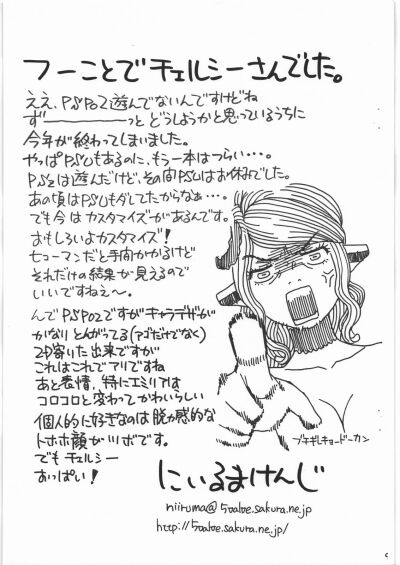 フーことでチェルシーさんでした。
ええ、PSPo2遊んでないんですけどね
ずーーーーーっと どうしようかと思っているうちに
今年が終わってしまいました。
やっぱPSUもあるのに、もう一本はつらい・・・。
PSZは遊んだけど、その間PSUはお休みでした。
あの頃はPSUもダレてたからなぁ・・・。
でも今はカスタマイズがあるんです。
おもしろいよカスタマイズ!
ヒューマンだと手間かかるけど
それだけの結果が見えるので
いいですねぇ〜。
んでPSPo2ですがキャラデザが
かなりとんがってる(アゴだけでなく)
2D寄りた出来ですが
これはこれでアリですね
あと表情、特にエミリアは
コロコロと変わってかわいらしい
個人的に好きなのは脱力感的な
トホホ顔がツボです。
でもチェルシー
おっぱい!
ブキギレキョードーカン
にいるまけんじ
niiruma@50aloe.sakura.ne.jp
http://50aloe.sakura.ne.jp/